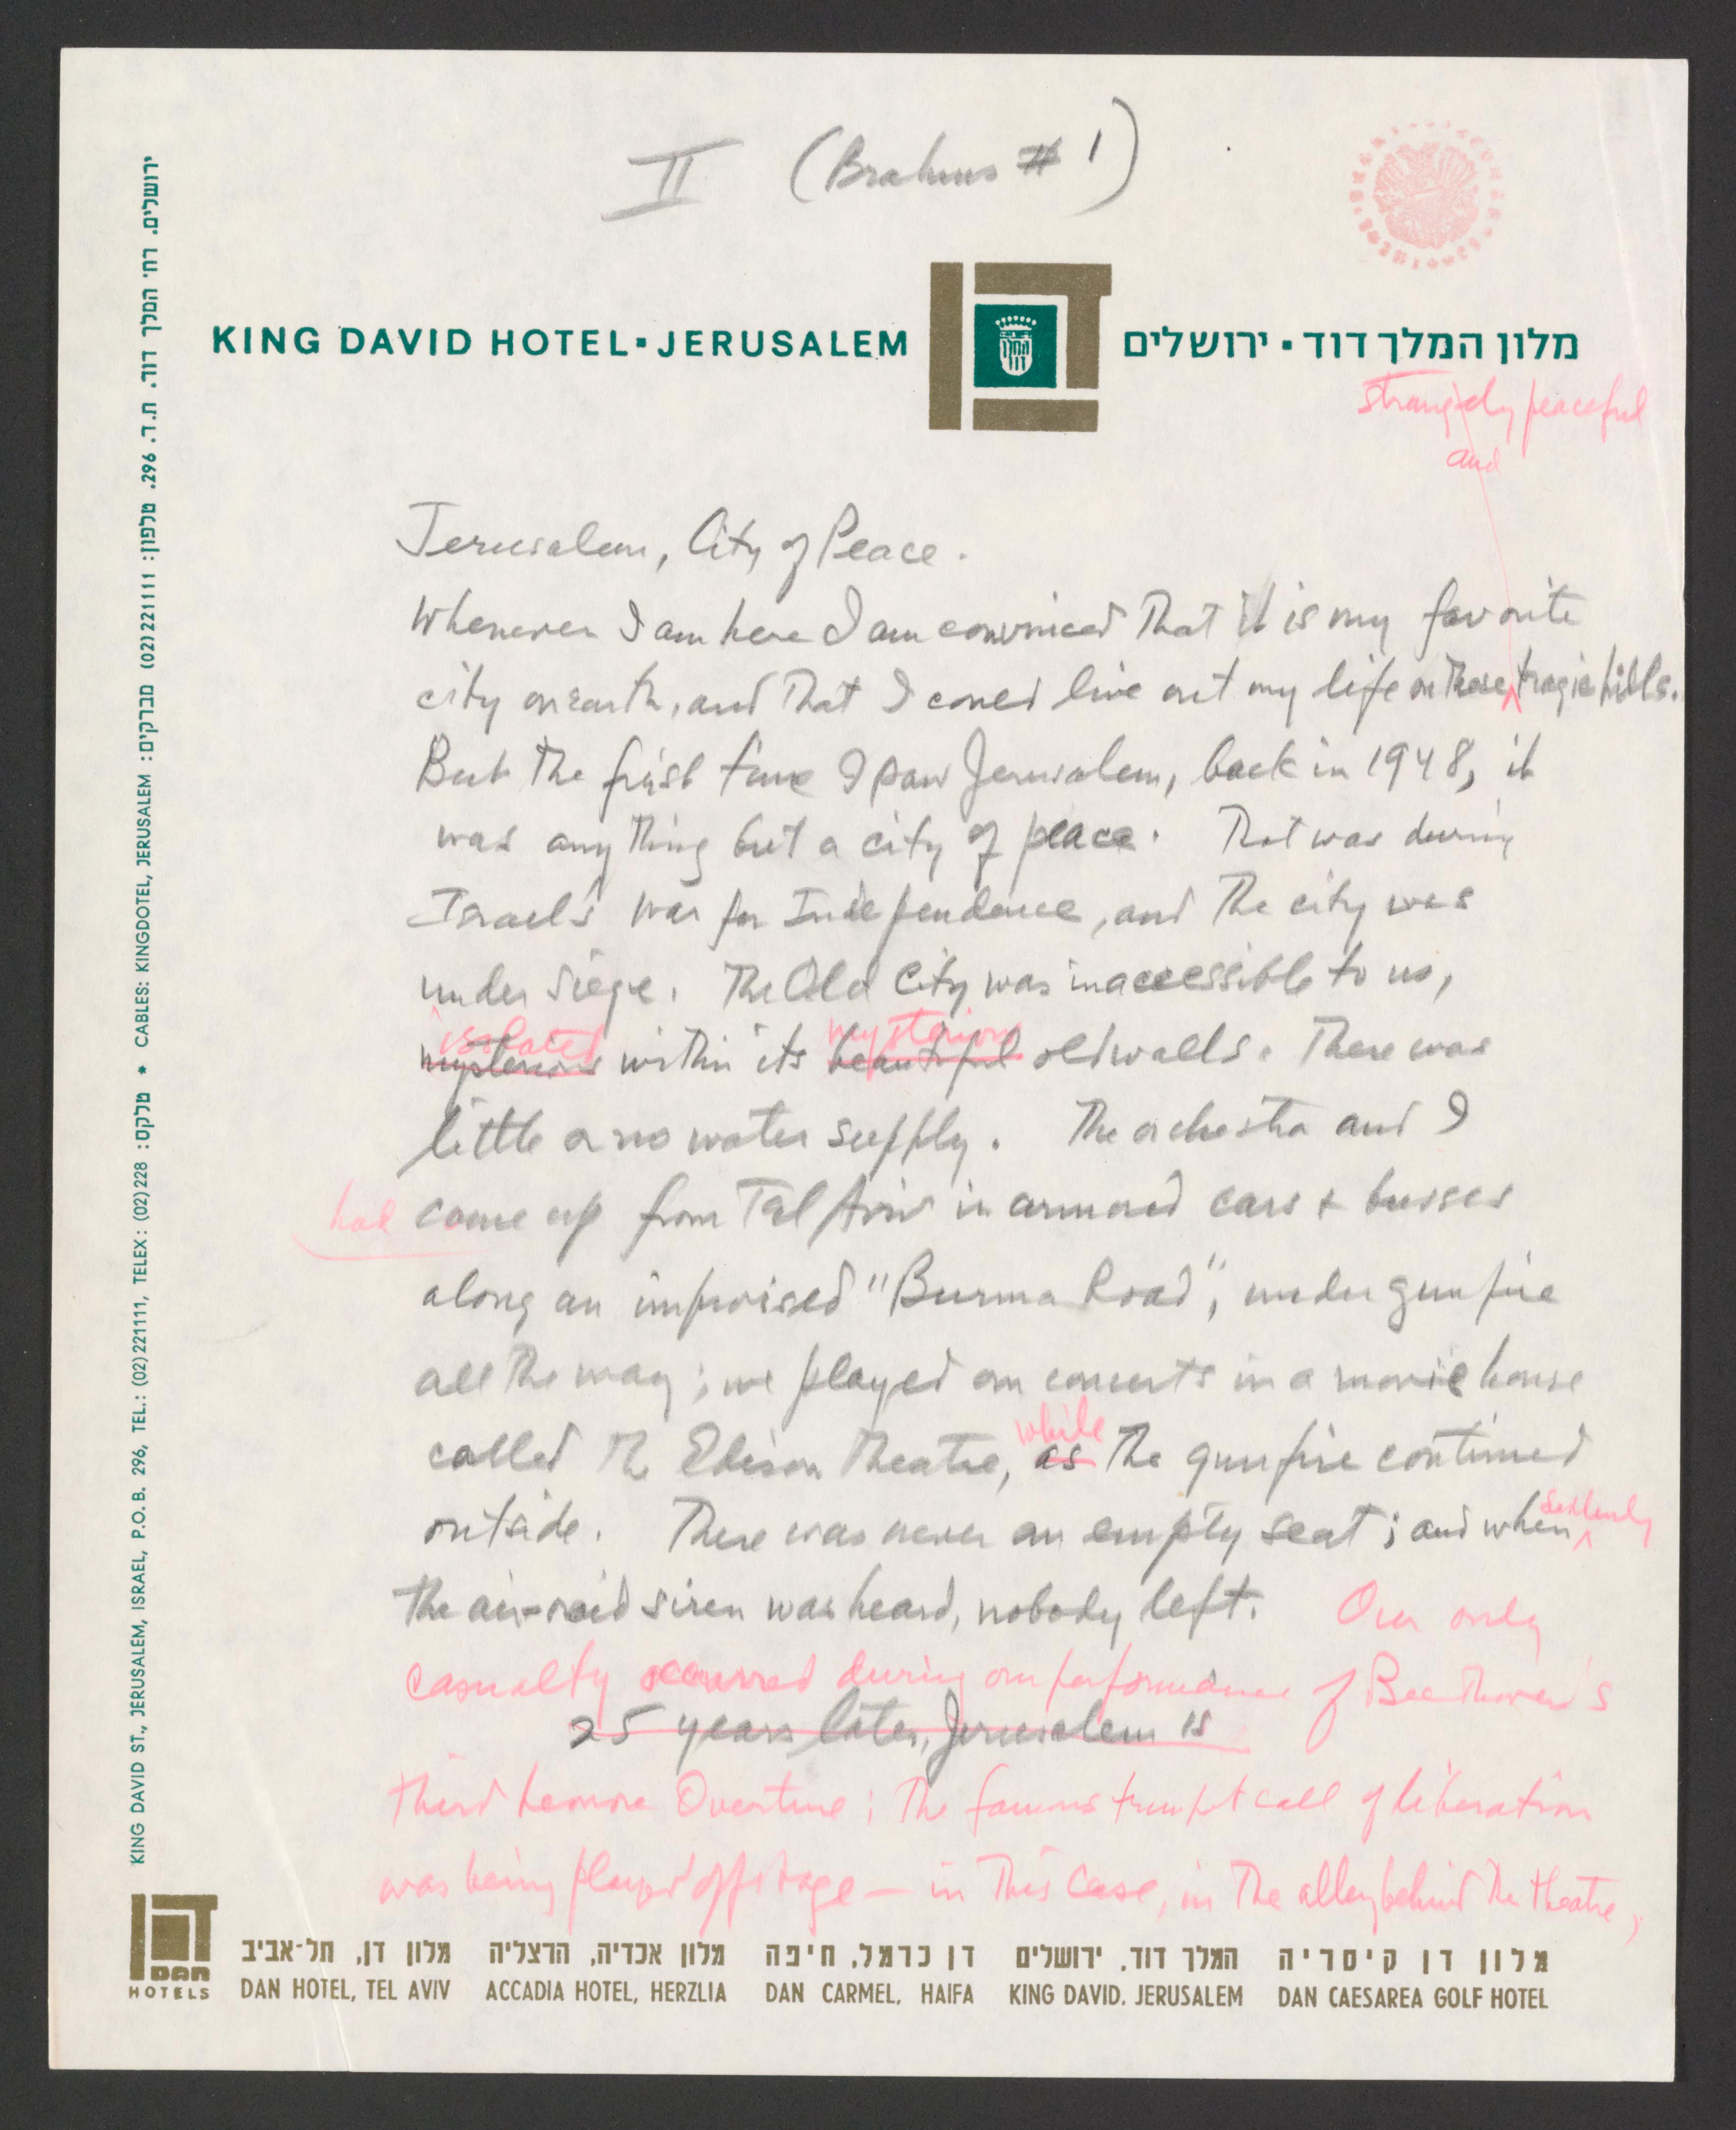 II (Brahms # 1)
KING DAVID HOTEL▪JERUSALEM
מלון המלך דוד ▪ ירושלים
strangely peaceful
and
Jerusalem, City of Peace.
Whenever I am here I am convinced that it is my favorite
city on earth, and that I could live out my life on these tragic hills.
But the first time I saw Jerusalem, back in 1948, it
was anything but a city of peace. That was during
Israel's War for Independence, and the city was
under siege. The Old City was inaccessible to us,
isolated mysterious
mysterious within its beautiful old walls. There was
little or no water supply. The orchestra and I
had come up from Tel Aviv in armored cars + busses
along an improvised "Burma Road", under gunfire
all the way; we played our concerts in a movie house
while
called the Edison Theatre, as the gunfire continued
suddenly
outside. There was never an empty seat; and when
the air-raid siren was heard, nobody left. Our only
casualty occurred during our performance of Beethoven's
25 years later, Jerusalem is
Third Leonore Overture; the famous trumpet call of liberation
was being played offstage — in this case, in the alley behind the theatre,
HOTELS DAN
מלון דן, תל-אביב מלון אכדיה, הרצליה דן כרמל, חיפה המלך דוד, ירושלים מלון דן קיסריה
DAN HOTEL, TEL AVIV ACCADIA HOTEL, HERZLIA DAN CARMEL, HAIFA KING DAVID, JERUSALEM DAN CAESAREA GOLF HOTEL
KING DAVID ST., JERUSALEM, ISRAEL, P.O.B. 296, TEL.: (02) 221111, TELEX: (02) 228 * CABLES: KINGDOTEL, JERUSALEM
ירושלים, רח' המלך דוד, ת.ד. 296, טלפון: 221111 (02) מברקים: טלקס: